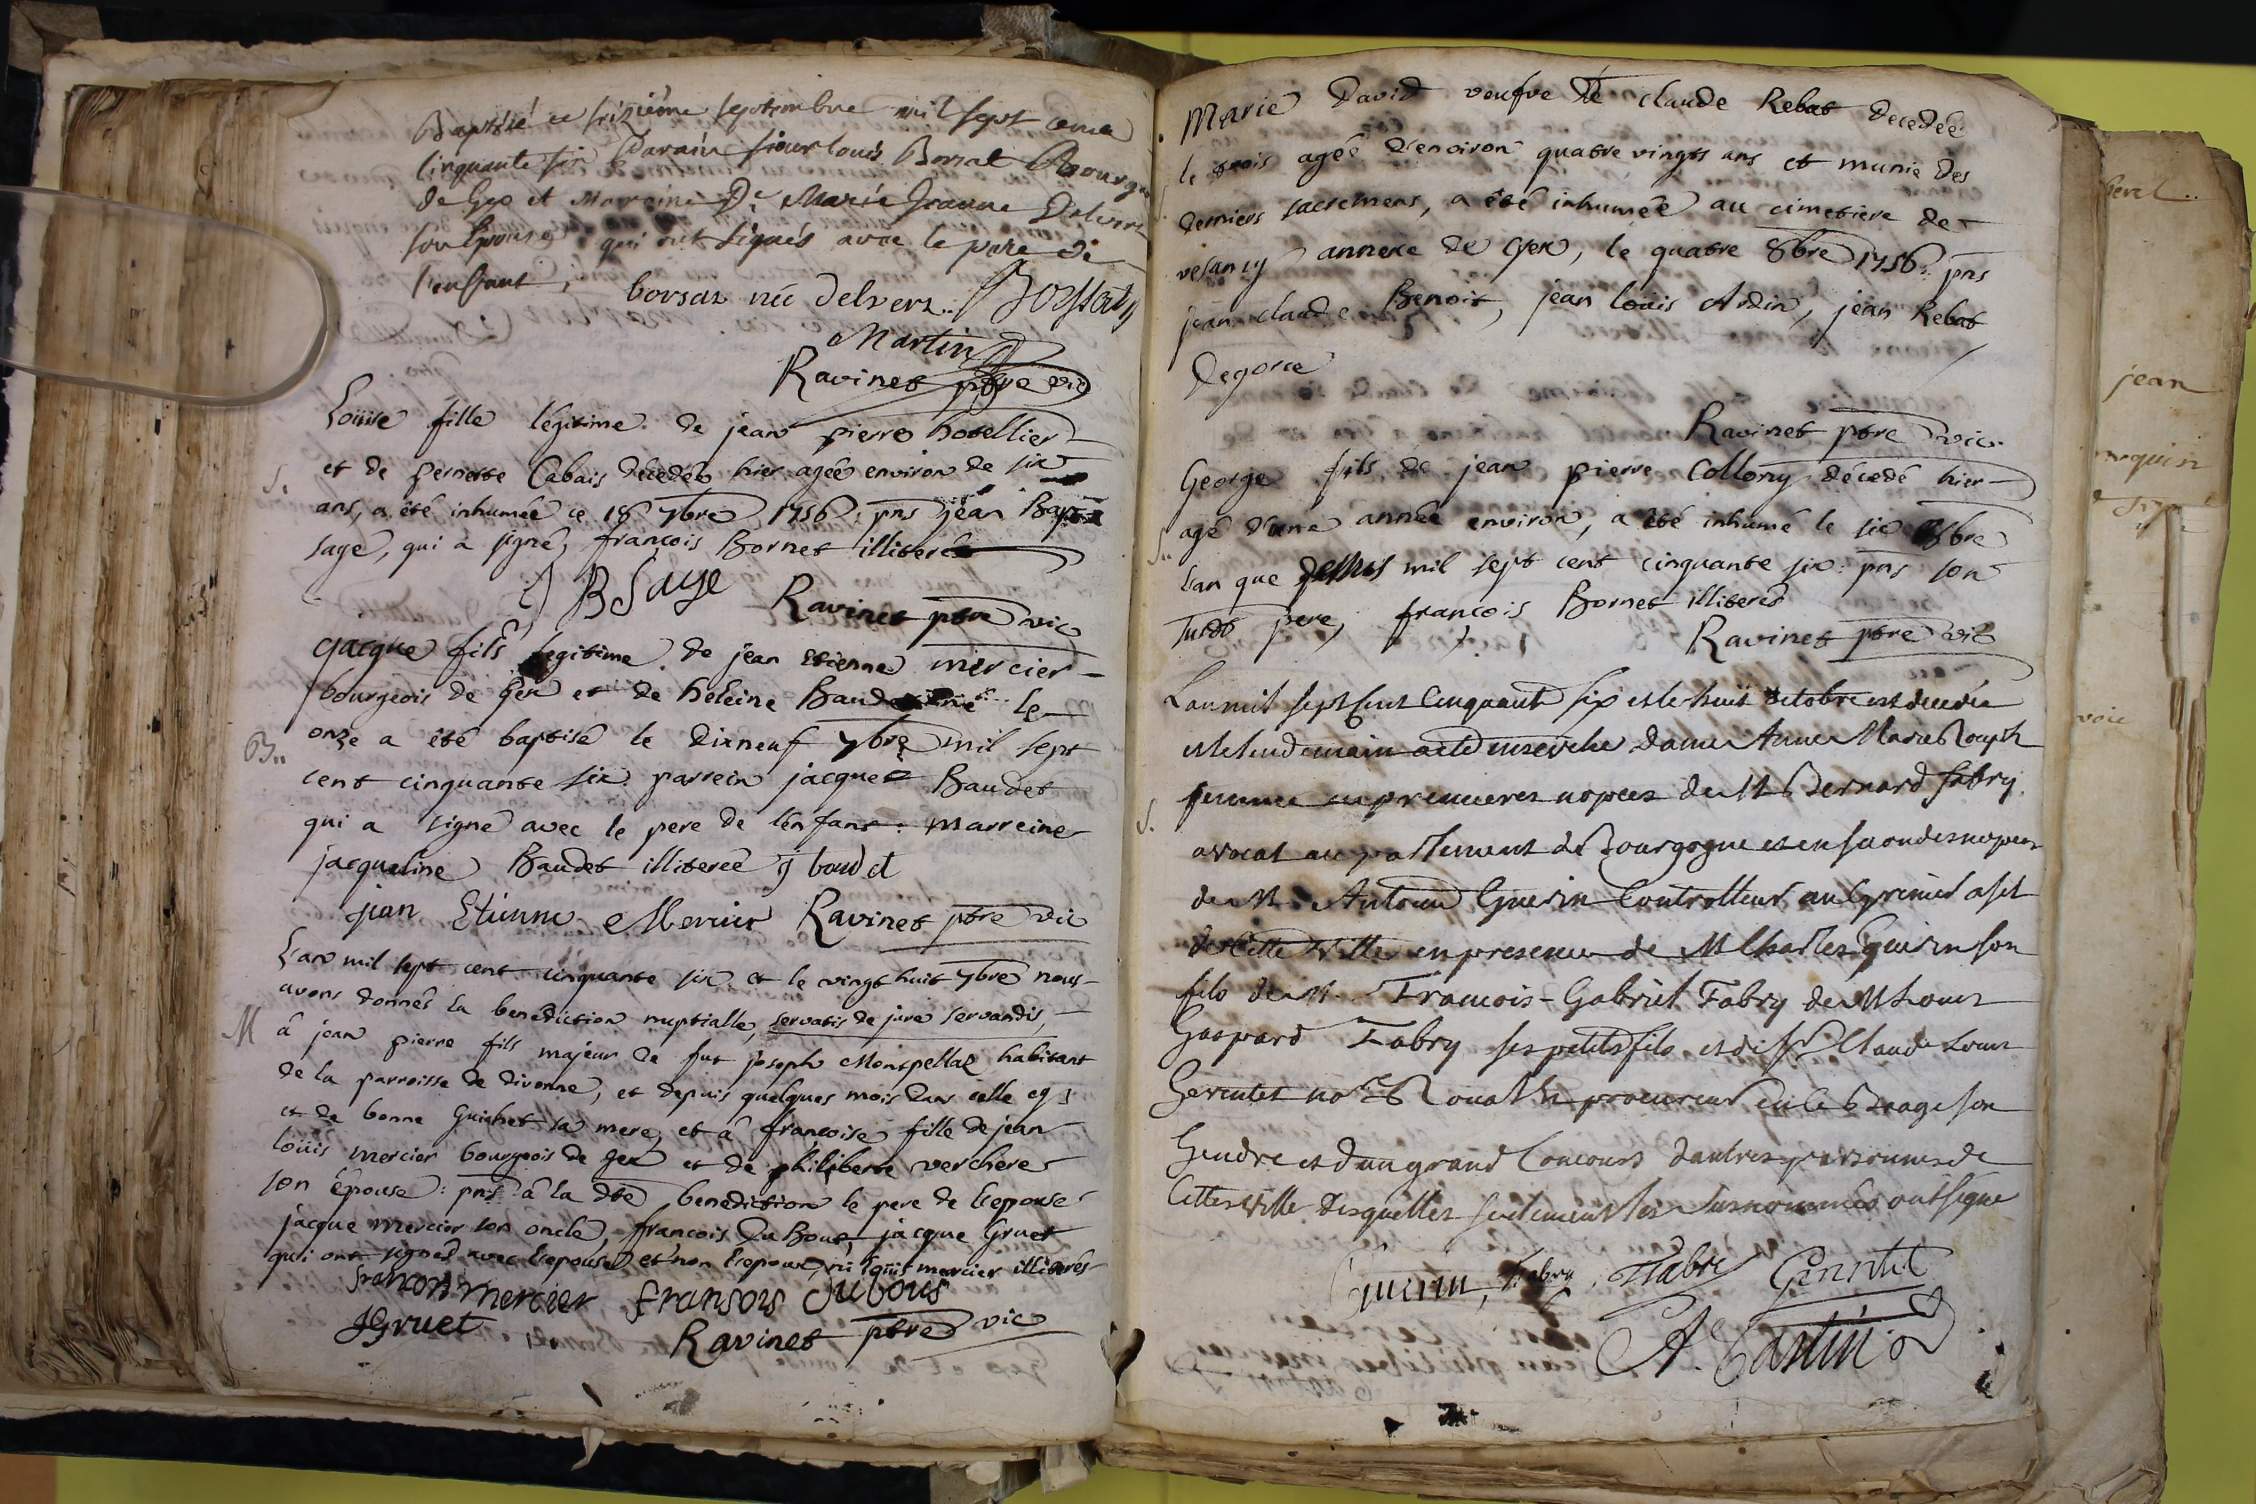 Baptisé ce seizième septembre mil sept cens
cinquante six Parain sieur louis Borsat Bourgeois
de Gex et Marraine De Marie Jeanne Delverz
son Epouse qui ont signés avec le pere de
l'enfant,
borsat née Delverz. Borssat
Martin
Ravinet ptre vic
Loüise fille légitime de jean pierre hotellier
et de pernette Cabais décedée hier agée environ de six
S.
ans, a été inhumée ce 18 7bre 1756: pns jean Bapt
sage, qui a signé, françois Bornet illiteré
J B Sage
Ravinet ptre vic
jacque fils legitime de jean Etienne mercier
bourgeois de Gex et de heleine le
onze a été baptisé le dixneuf 7bre mil sept
B..
cent cinquante six parrein jacque Baudet
qui a signé avec le pere de l'enfant: marreine
jacqueline Baudet illiterée J baudet
jean Etienne Mercier Ravinet ptre vic
L'an mil sept cent cinquante six et le vingt huit 7bre nous
avons donnés la benediction nuptialle, servatis de jure servandis,
M
â jean pierre fils majeur de fut joseph Montpellaz habitant
de la parroisse de divonne, et depuis quelques mois dans celle cy
et de bonne Guichet sa mere, et â françoise fille de jean
loüis mercier bourgeois de gex et de philiberte verchere
son épouse: pns â la dte benediction le pere de l'epouse
jacque mercier son oncle, francois DuBout, jacque Gruet
qui ont signés avec l'epouse et non l'epoux, ni loüis mercier illiterés
mercier fransois dubous
JGruet
Ravinet ptre vic
Marie David veufve de claude Rebat decedée
le trois agée d'environ quatre vingts ans et munie des
S.
derniers sacremens, a été inhumée au cimetiere de
vesancy annexe de Gex, le quatre 8bre 1756: pns
jean claude Benoit, jean louis Ardin, jean Rebat
Degorce
Ravinet ptre vic.
George fils de jean pierre Collony décedé hier
agé d'une année environ, a été inhumé le six 8bre
S..
l'an que dessus mil sept cent cinquante six: pns son
susdt pere, françois Bornet illiterés
Ravinet ptre vic
L'an mil sept cent cinquante six et le huit octobre est decedée
et le lendemain a été ensevelie dame Anne Marie
femme en premieres nopces de M Bernard fabry
S.
avocat au parlement de Bourgogne et en secondes nopces
de M. Antoine Guerin Controlleur au Grenier a sel
de Cette ville en presence de M Charles Guerin son
fils de M. Francois-Gabriel Fabry de M Louis
Gaspard Fabry ses petits fils et de Sr Claude Louis
procureur son
Gendre et d'un grand Concours d'autres personnes de
Cette ville desquelles seulement les susnommées ont signé
Guerin, Fabry, Fabry
A. Castin